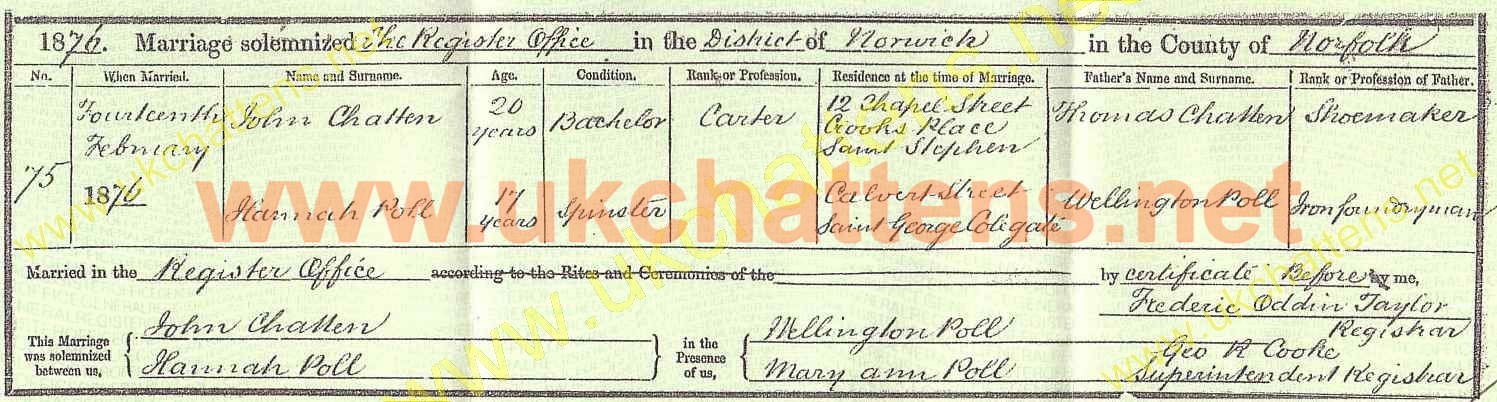 1876. Marriage solemnized The Register Office in the District of Norwich in the County of Norfolk
No. When Married. Name and Surname. Age. Condition. Rank or Profession. Residence at the time of Marriage. Father's Name and Surname. Rank or Profession of Father.
75 Fourteenth February 1876 John Chatten 20 years Bachelor Carter 12 Chapel Street Crooks Place Saint Stephen Thomas Chatten Shoemaker
Hannah Poll 17 years Spinster Calvert Street Saint George Colegate Wellington Poll Iron foundryman
Married in the Register Office according to the Rites and Ceremonies of the by certificate Before by me,
This Marriage was solemnized between us, John Chatten Hannah Poll in the Presence of us, Wellington Poll Mary ann Poll
Frederic Oddin Taylor
Registrar
Geo R Cooke
Superintendent Registrar
www.ukchattens.net
www.ukchattens.net
www.ukchattens.net
www.ukchattens.net